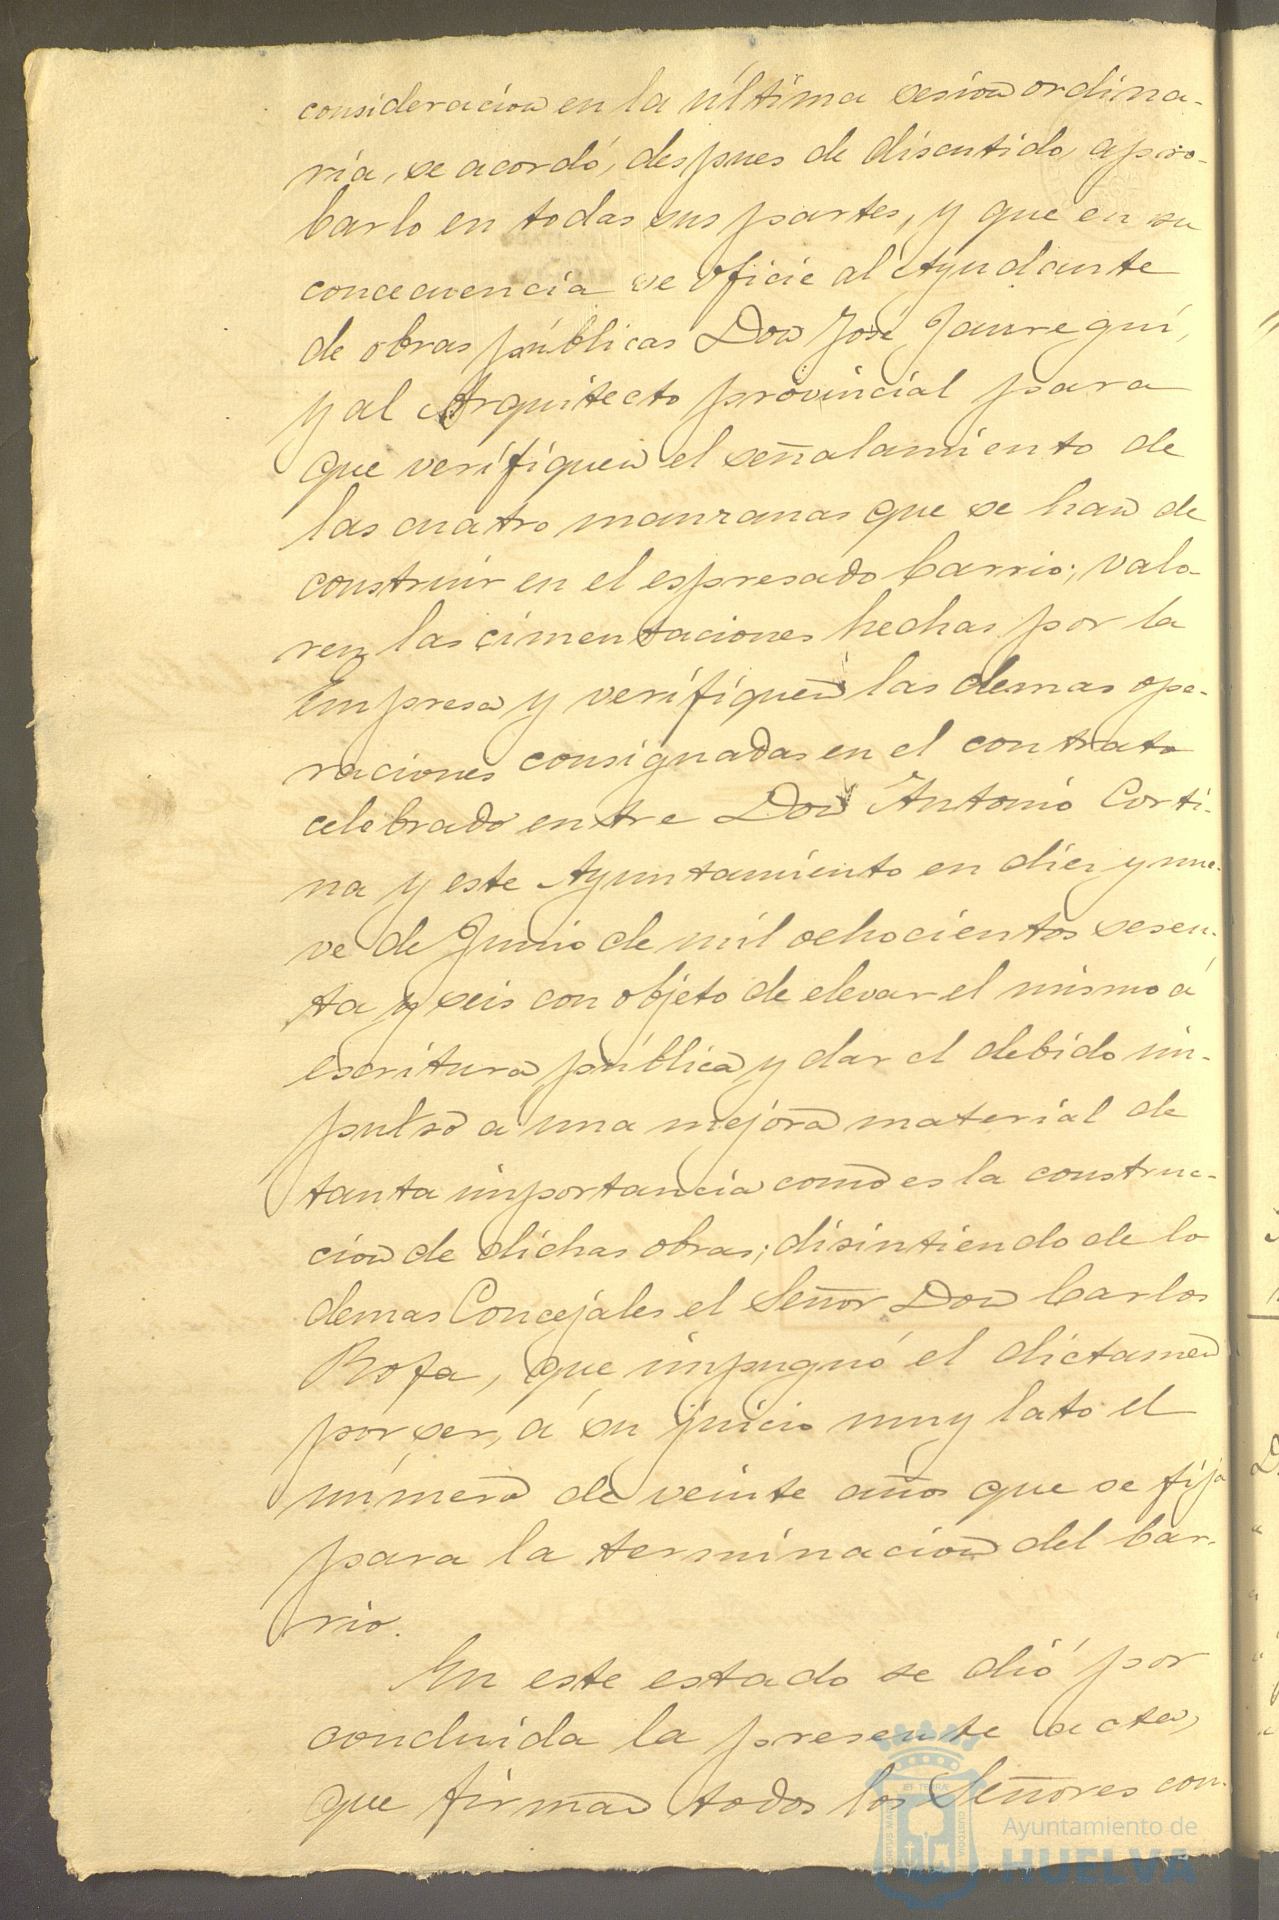 consideracion en la última sesion ordina-
ria, se acordó, despues de discutido, apro-
barlo en todas sus partes, y que en su
concecuencia se oficie al Ayudante
de obras públicas Don José Jauregui,
y al Arquitecto provincial para
que verifiquen el señalamiento de
las cuatro manzanas que se han de
construir en el espresado barrio; valo-
ren las cimentaciones hechas por la
Empresa y verifiquen las demas ope-
raciones consignadas en el contrato
celebrado entre Don Antonio Corti-
na y este Ayuntamiento en diez y nue-
ve de Junio de mil ochocientos sesen-
ta y seis con objeto de elevar el mismo á
escritura pública y dar el debido im-
pulso a una mejora material de
tanta importancia como es la construc-
cion de dichas obras; disintiendo de lo
demas Concejales el Señor Don Carlos
Rofa, que impugnó el dictamen
por ser, á su juicio muy lato el
número de veinte años que se fija
para la terminacion del bar-
rio.
En este estado se dió por
concluida la presente acta,
que firman todos los Señores con-
Ayuntamiento de
HUELVA